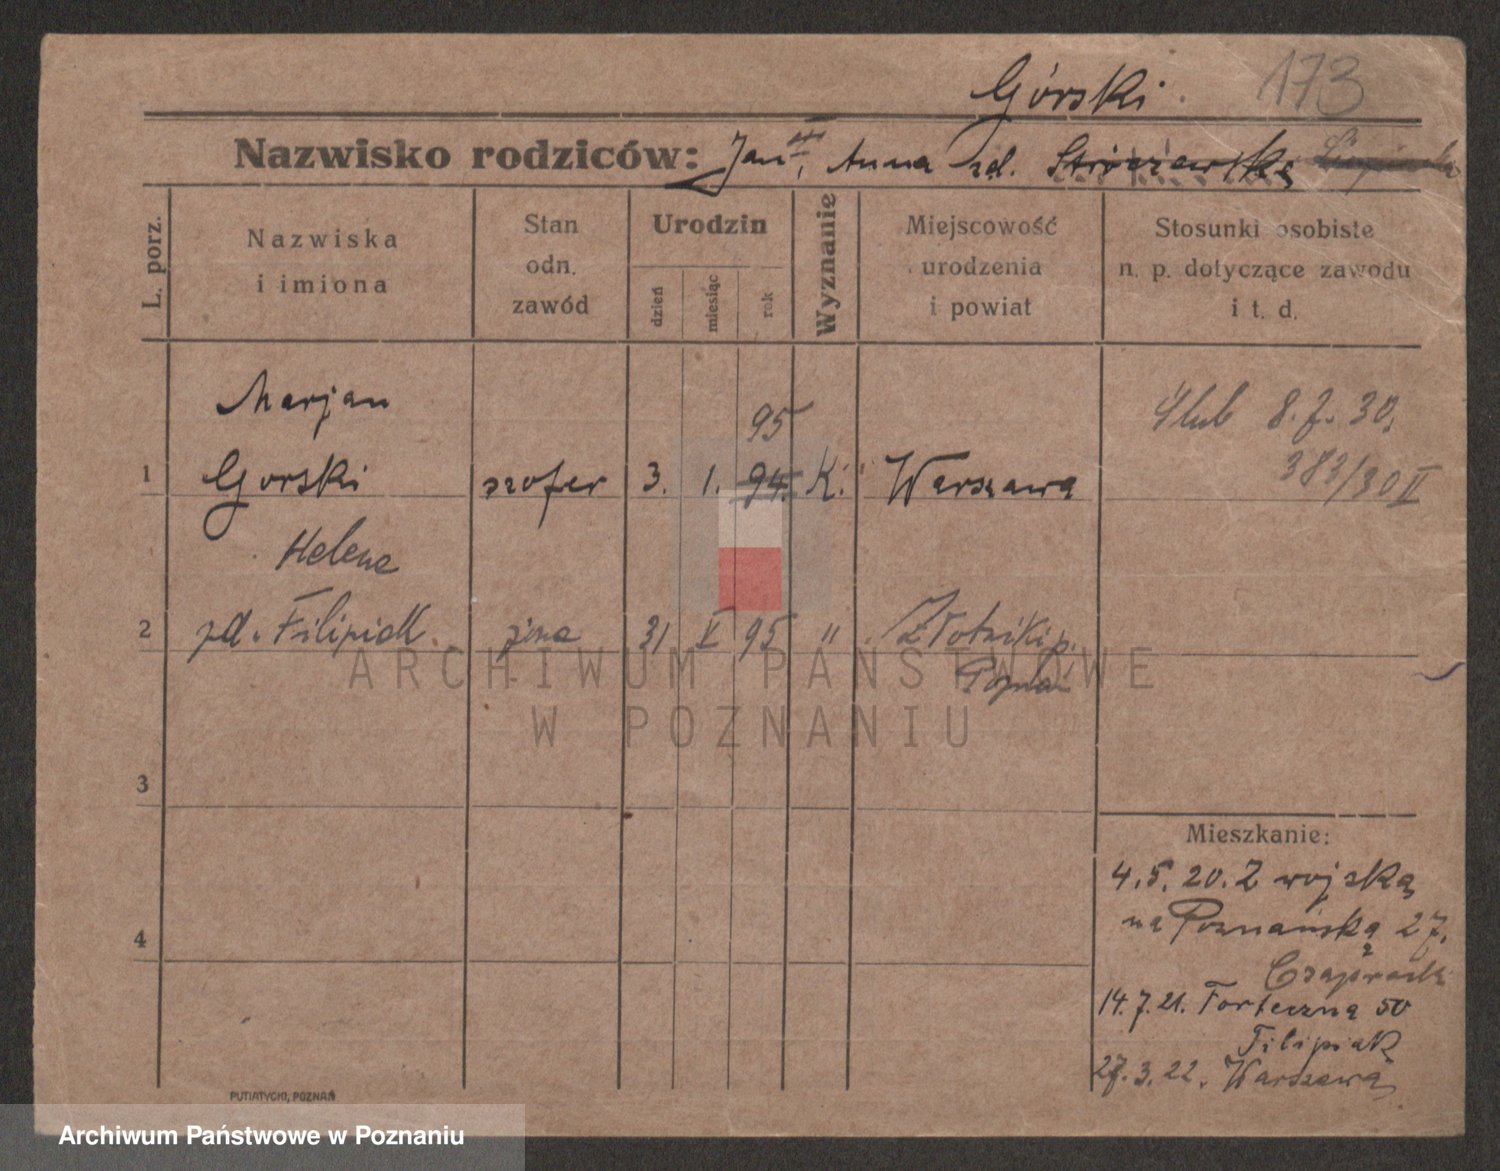 Górski 173
Nazwisko rodziców: Jan, Anna zd. Stróżewska
L. porz.
Nazwiska
i imiona
Stan
odn.
zawód
Urodzin
dzień
miesiąc
rok
Wyznanie
Miejscowość
urodzenia
i powiat
Stosunki osobiste
n. p. dotyczące zawodu
i t. d.
Marjan
95
Ślub 8.7.30.
1 Gorski szofer 3. 1. 94. K. Warszawa
383/30 II
Helena
2 zd. Filipiak żona 31 V 95 " Złotniki p.
Poznań
ARCHIWUM PAŃSTWOWE
W POZNANIU
3
Mieszkanie:
4.5.20. Z wojska
na Poznańską 27.
4
14.7.21. Forteczna 50
Filipiak
27.3.22. Warszawa
PUTIATYCKI, POZNAŃ
Archiwum Państwowe w Poznaniu